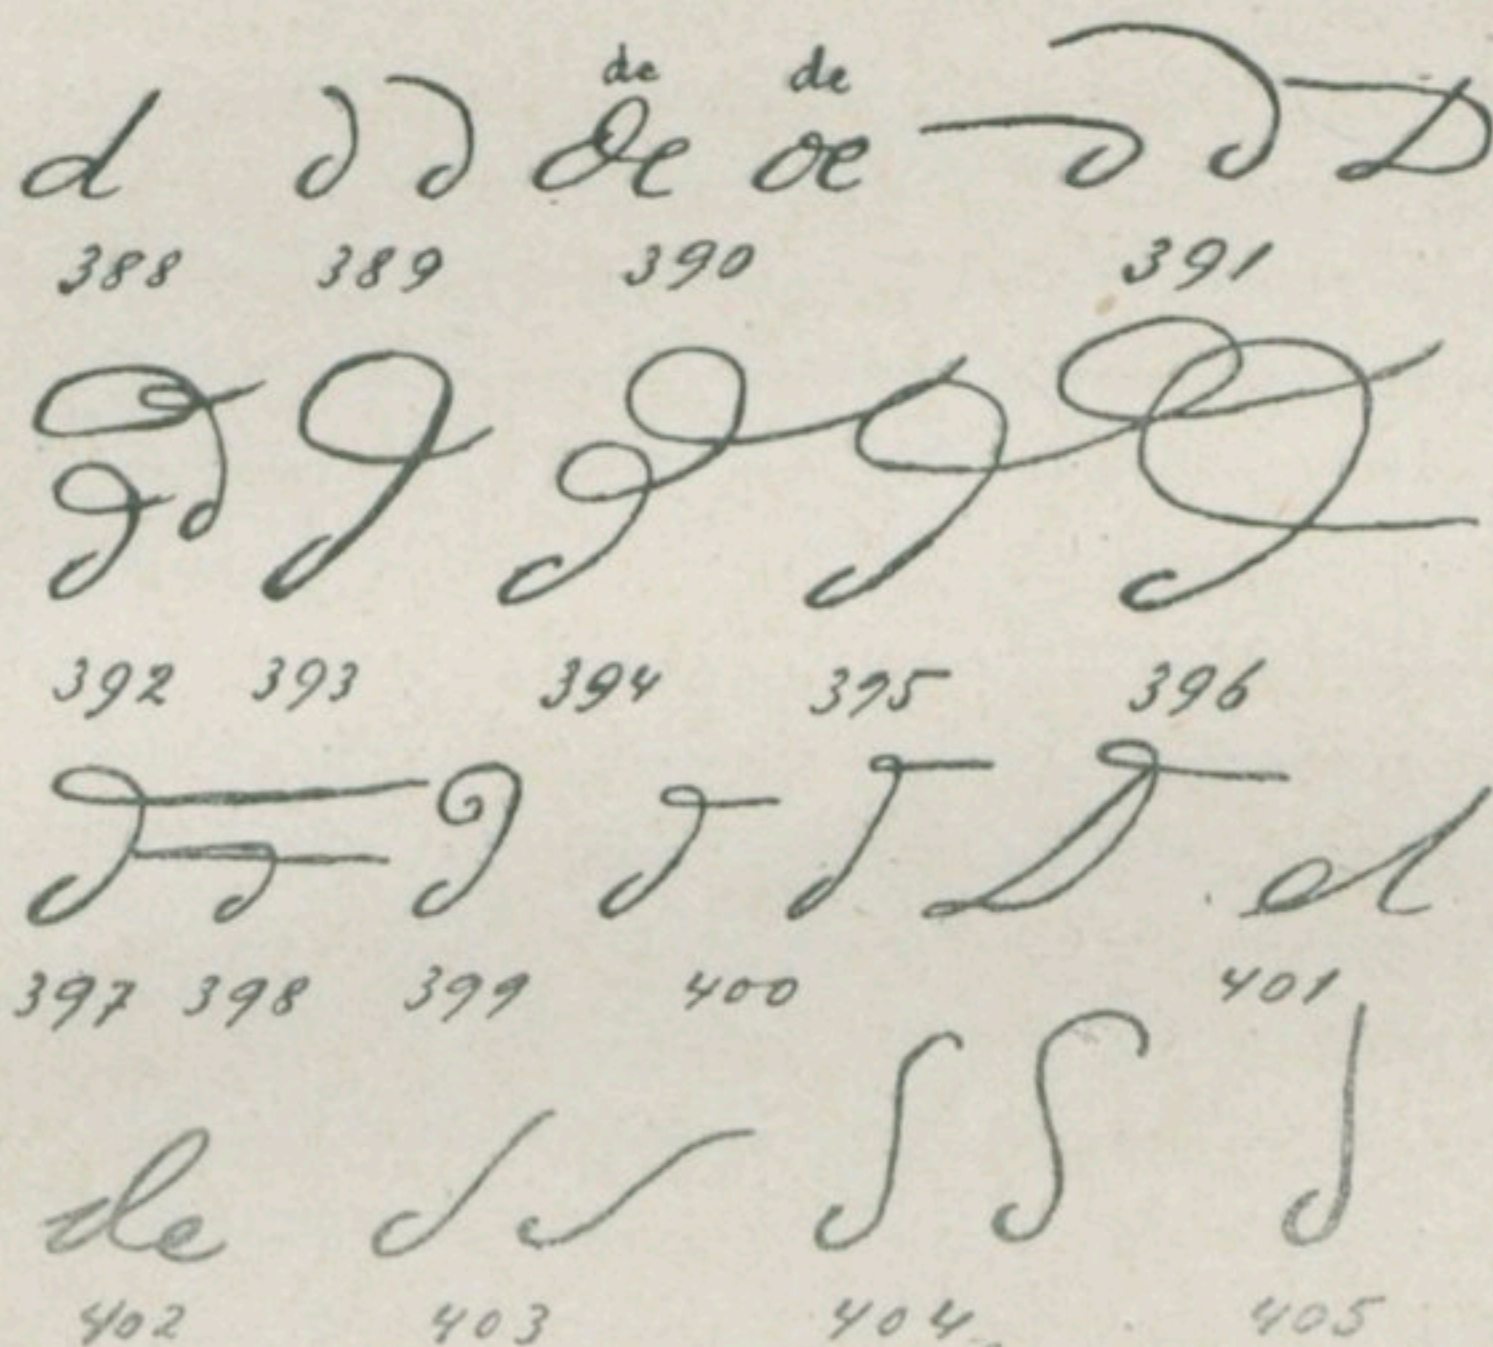 de de
d d d de de d d d
388 389 390 391
d d d d d d
392 393 394 395 396
d d d d d d d
397 398 399 400 401
de d d d d d
402 403 404 405